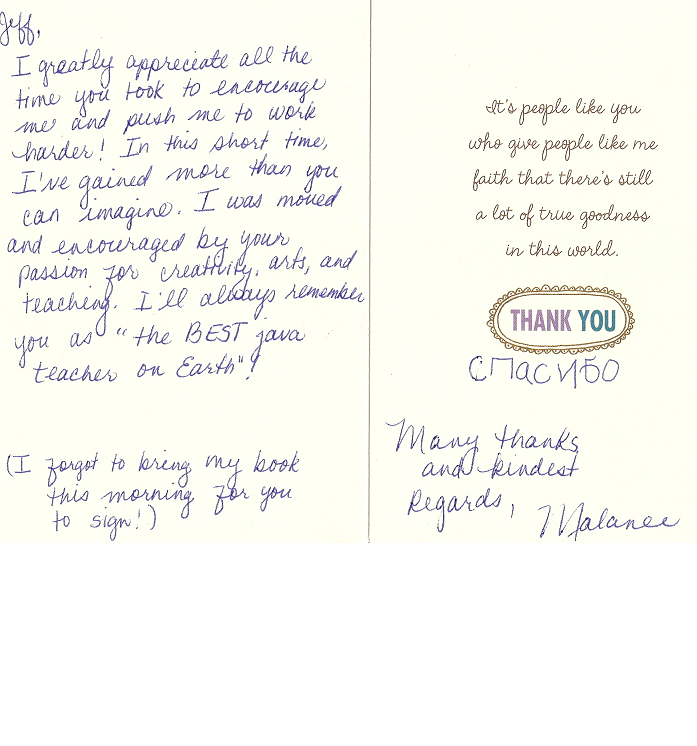 Jeff,
I greatly appreciate all the
time you took to encourage
me and push me to work
harder! In this short time,
I've gained more than you
can imagine. I was moved
and encouraged by your
passion for creativity, arts, and
teaching. I'll always remember
you as "the BEST java
teacher on Earth"!
(I forgot to bring my book
this morning for you
to sign!)
It's people like you
who give people like me
faith that there's still
a lot of true goodness
in this world.
THANK YOU
спасибо
Many thanks
and kindest
Regards,
Malanee